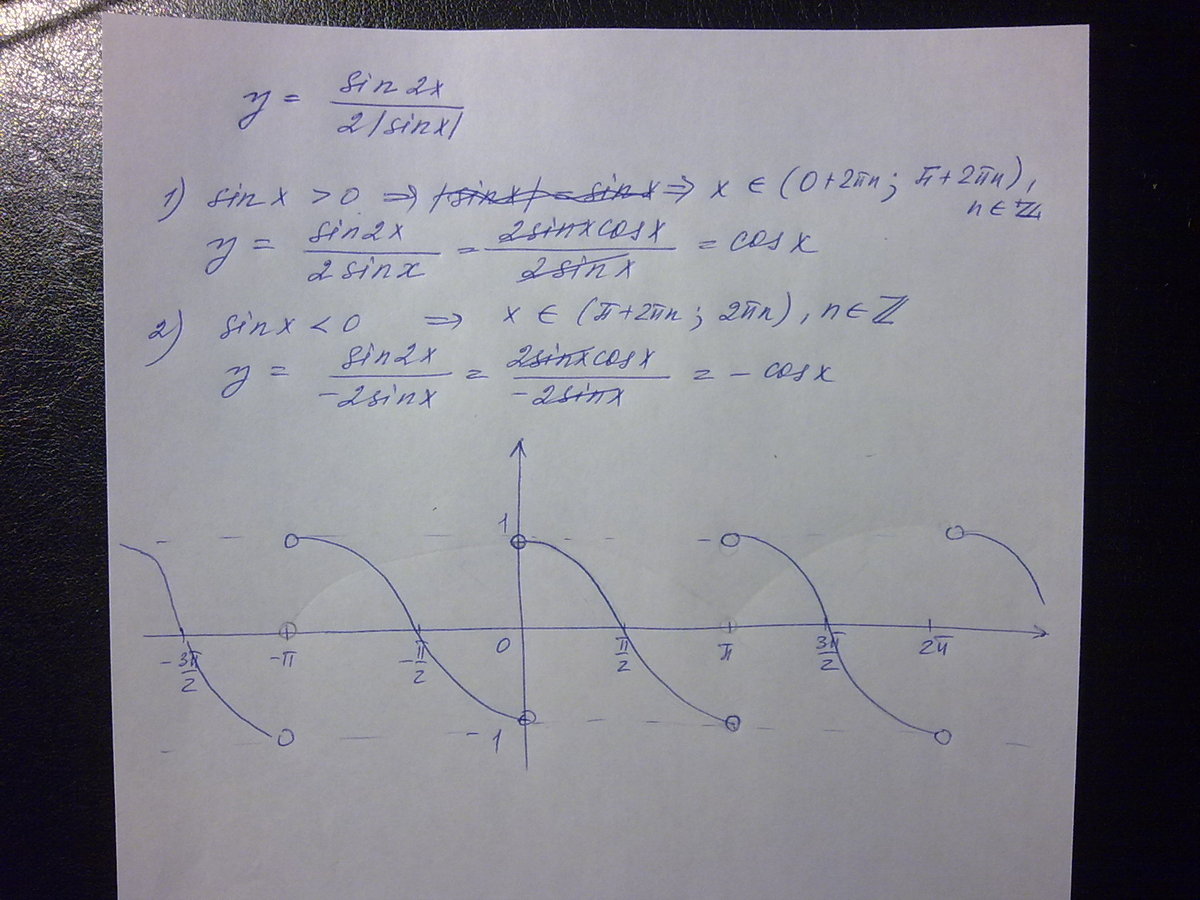 y = sin 2x / 2|sin x|
1) sin x > 0 ⇒ |sin x| = sin x ⇒ x ∈ (0+2πn; π+2πn), n ∈ ℤ
y = sin 2x / 2 sin x = 2 sin x cos x / 2 sin x = cos x
2) sin x < 0 ⇒ x ∈ (π+2πn; 2πn), n ∈ ℤ
y = sin 2x / -2 sin x = 2 sin x cos x / -2 sin x = - cos x
1
-3π/2 -π -π/2 0 π/2 π 3π/2 2π
-1